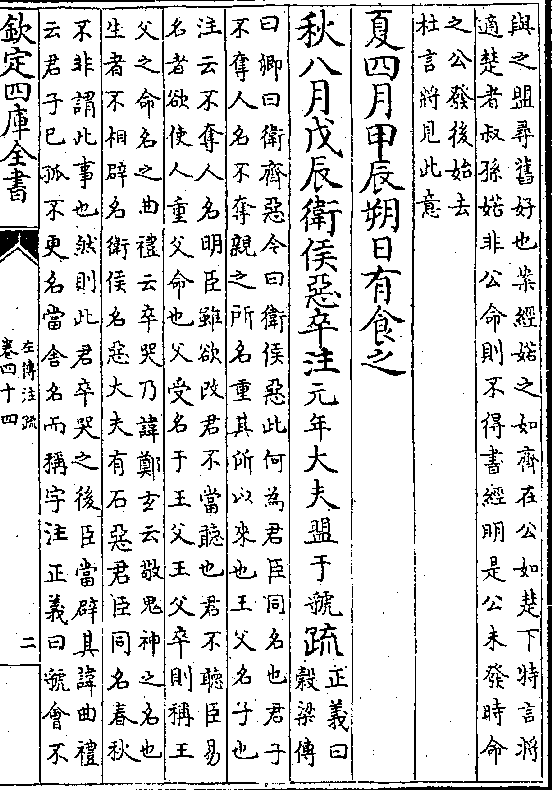 與之盟尋舊好也案經婼之如齊在公如楚下特言將
適楚者叔孫婼非公命則不得書經明是公未發時命
之公發後始去
杜言將見此意
夏四月甲辰朔日有食之
秋八月戊辰衛侯惡卒注元年大夫盟于虢疏正義曰
穀梁傳
曰鄉曰衛齊惡今曰衛侯惡此何為君臣同名也君子
不奪人名不奪親之所名重其所以來也王父名子也
注云不奪人名明臣雖欲改君不當聽也君不聽臣易
名者欲使人重父命也父受名于王父王父卒則稱王
父之命名之曲禮云卒哭乃諱鄭玄云敬鬼神之名也
生者不相辟名衛侯名惡大夫有石惡君臣同名春秋
不非謂此事也然則此君卒哭之後臣當辟其諱曲禮
云君子已孤不更名當舍名而稱字注正義曰虢會不
欽定四庫全書
左傳注疏
卷四十四
二